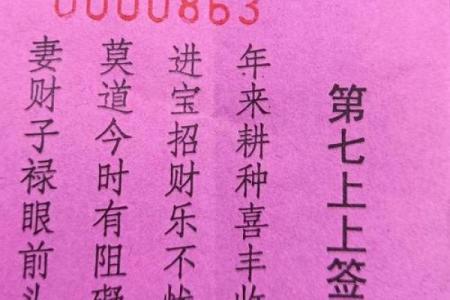 0000863
第七上上签
年来耕种喜丰收
进宝招财乐不忧
莫道今时有阻礙
妻财子禄眼前头